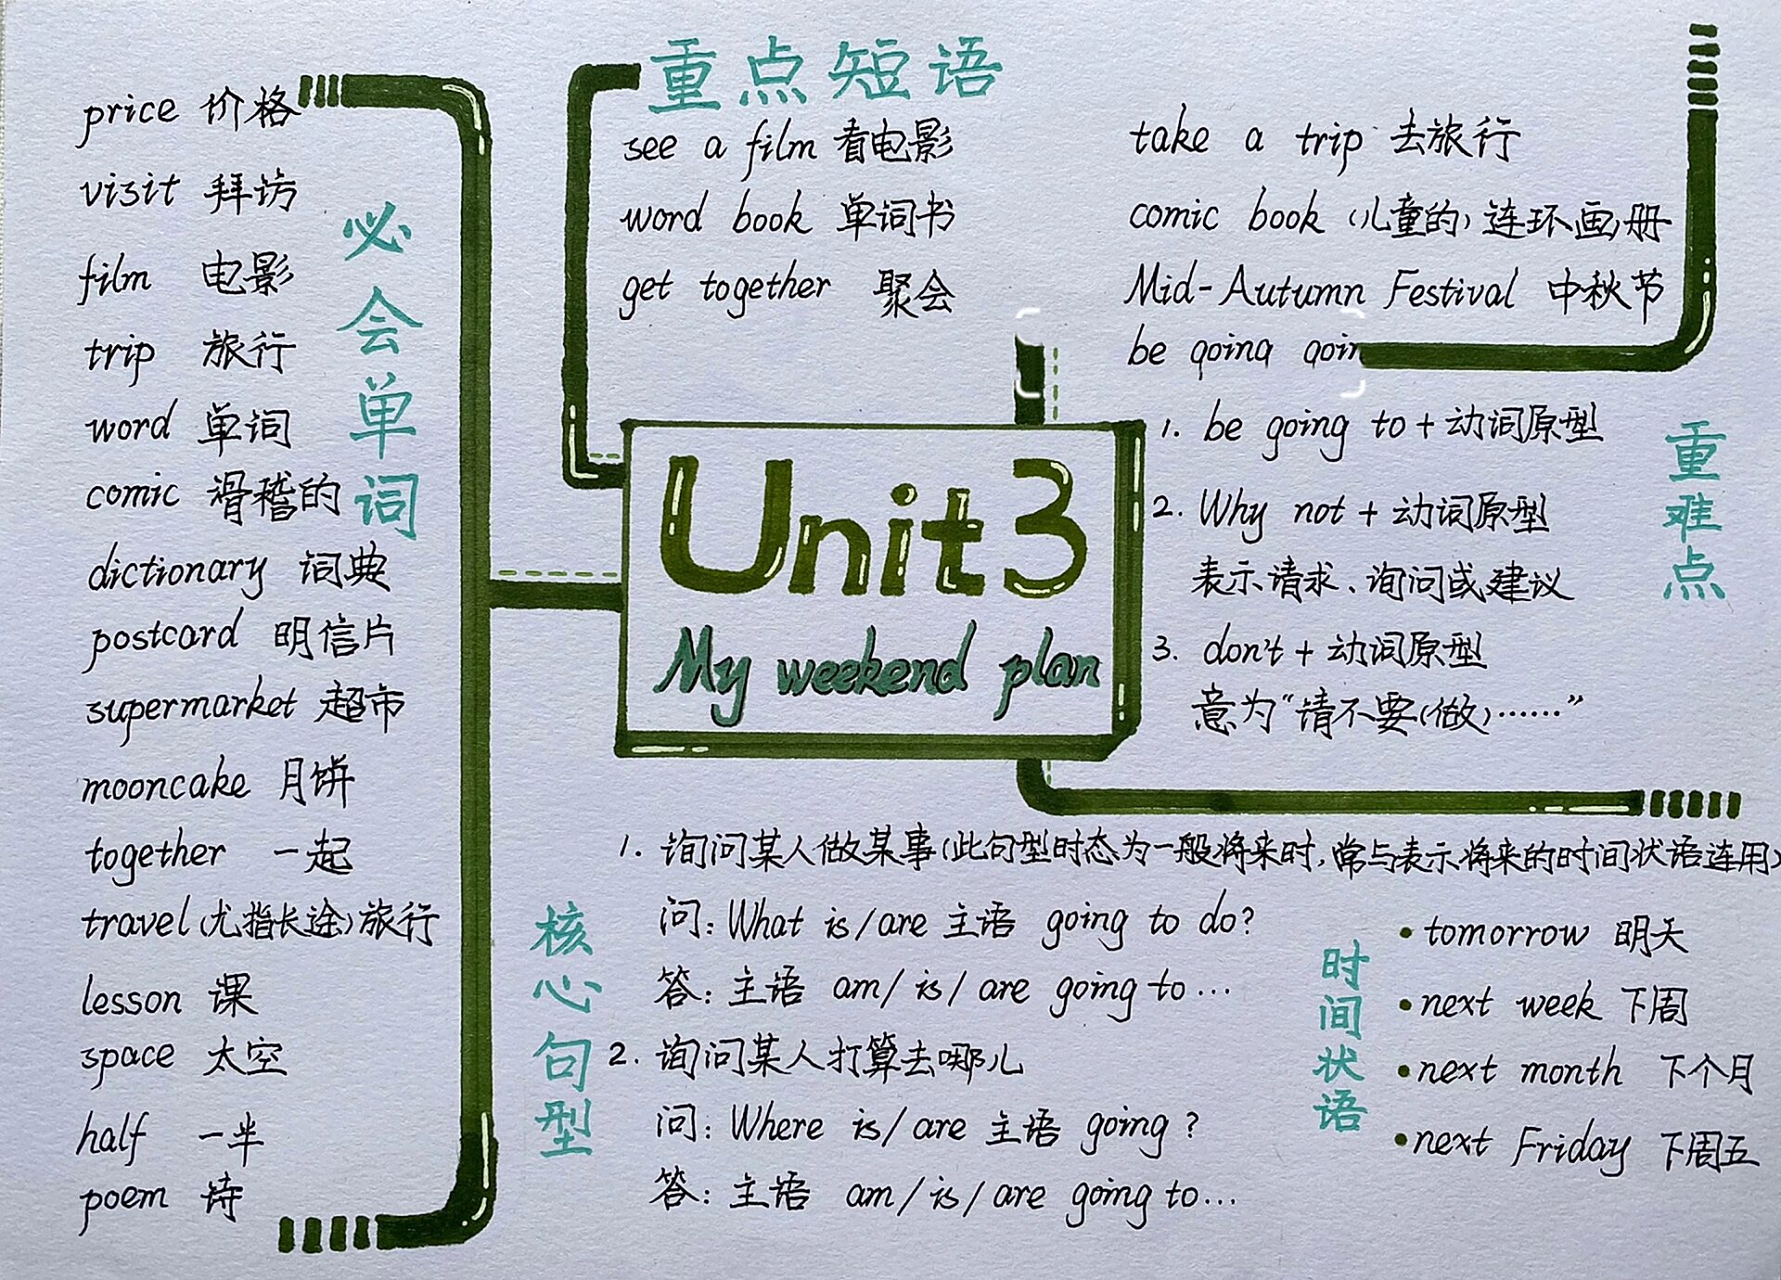 Unit 3
My weekend plan
必会单词
price 价格
visit 拜访
film 电影
trip 旅行
word 单词
comic 滑稽的
dictionary 词典
postcard 明信片
supermarket 超市
mooncake 月饼
together 一起
travel(尤指长途)旅行
lesson 课
space 太空
half 一半
poem 诗
重点短语
see a film 看电影
word book 单词书
get together 聚会
take a trip 去旅行
comic book (儿童的)连环画册
Mid-Autumn Festival 中秋节
be going
重难点
1. be going to + 动词原型
2. Why not + 动词原型
表示请求、询问或建议
3. don't + 动词原型
意为“请不要(做)……”
核心句型
1. 询问某人做某事(此句型时态为一般将来时,常与表示将来的时间状语连用)
问: What is/are 主语 going to do?
答: 主语 am/is/are going to...
2. 询问某人打算去哪儿
问: Where is/are 主语 going?
答: 主语 am/is/are going to...
时间状语
• tomorrow 明天
• next week 下周
• next month 下个月
• next Friday 下周五